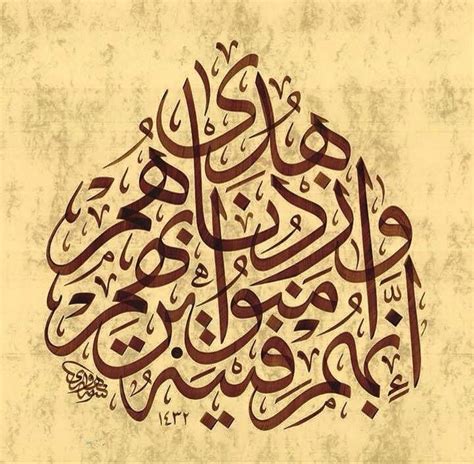 إِنَّهُمْ فِتْيَةٌ
آمَنُوا بِرَبِّهِمْ
وَزِدْنَاهُمْ
هُدًى
١٤٣٢